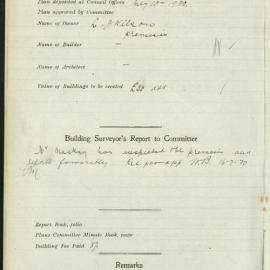 Plan deposited at Council Offices July 10 - 1920.
Plan approved by Committee
Name of Owner
premises
Name of Builder -
Name of Architect -
Value of Buildings to be erected £30
Building Surveyor's Report to Committee
Mr Mackay has inspected the premises and
reports favourably
Report Book, folio
Plans Committee Minute Book, page
Building Fee Paid
Remarks